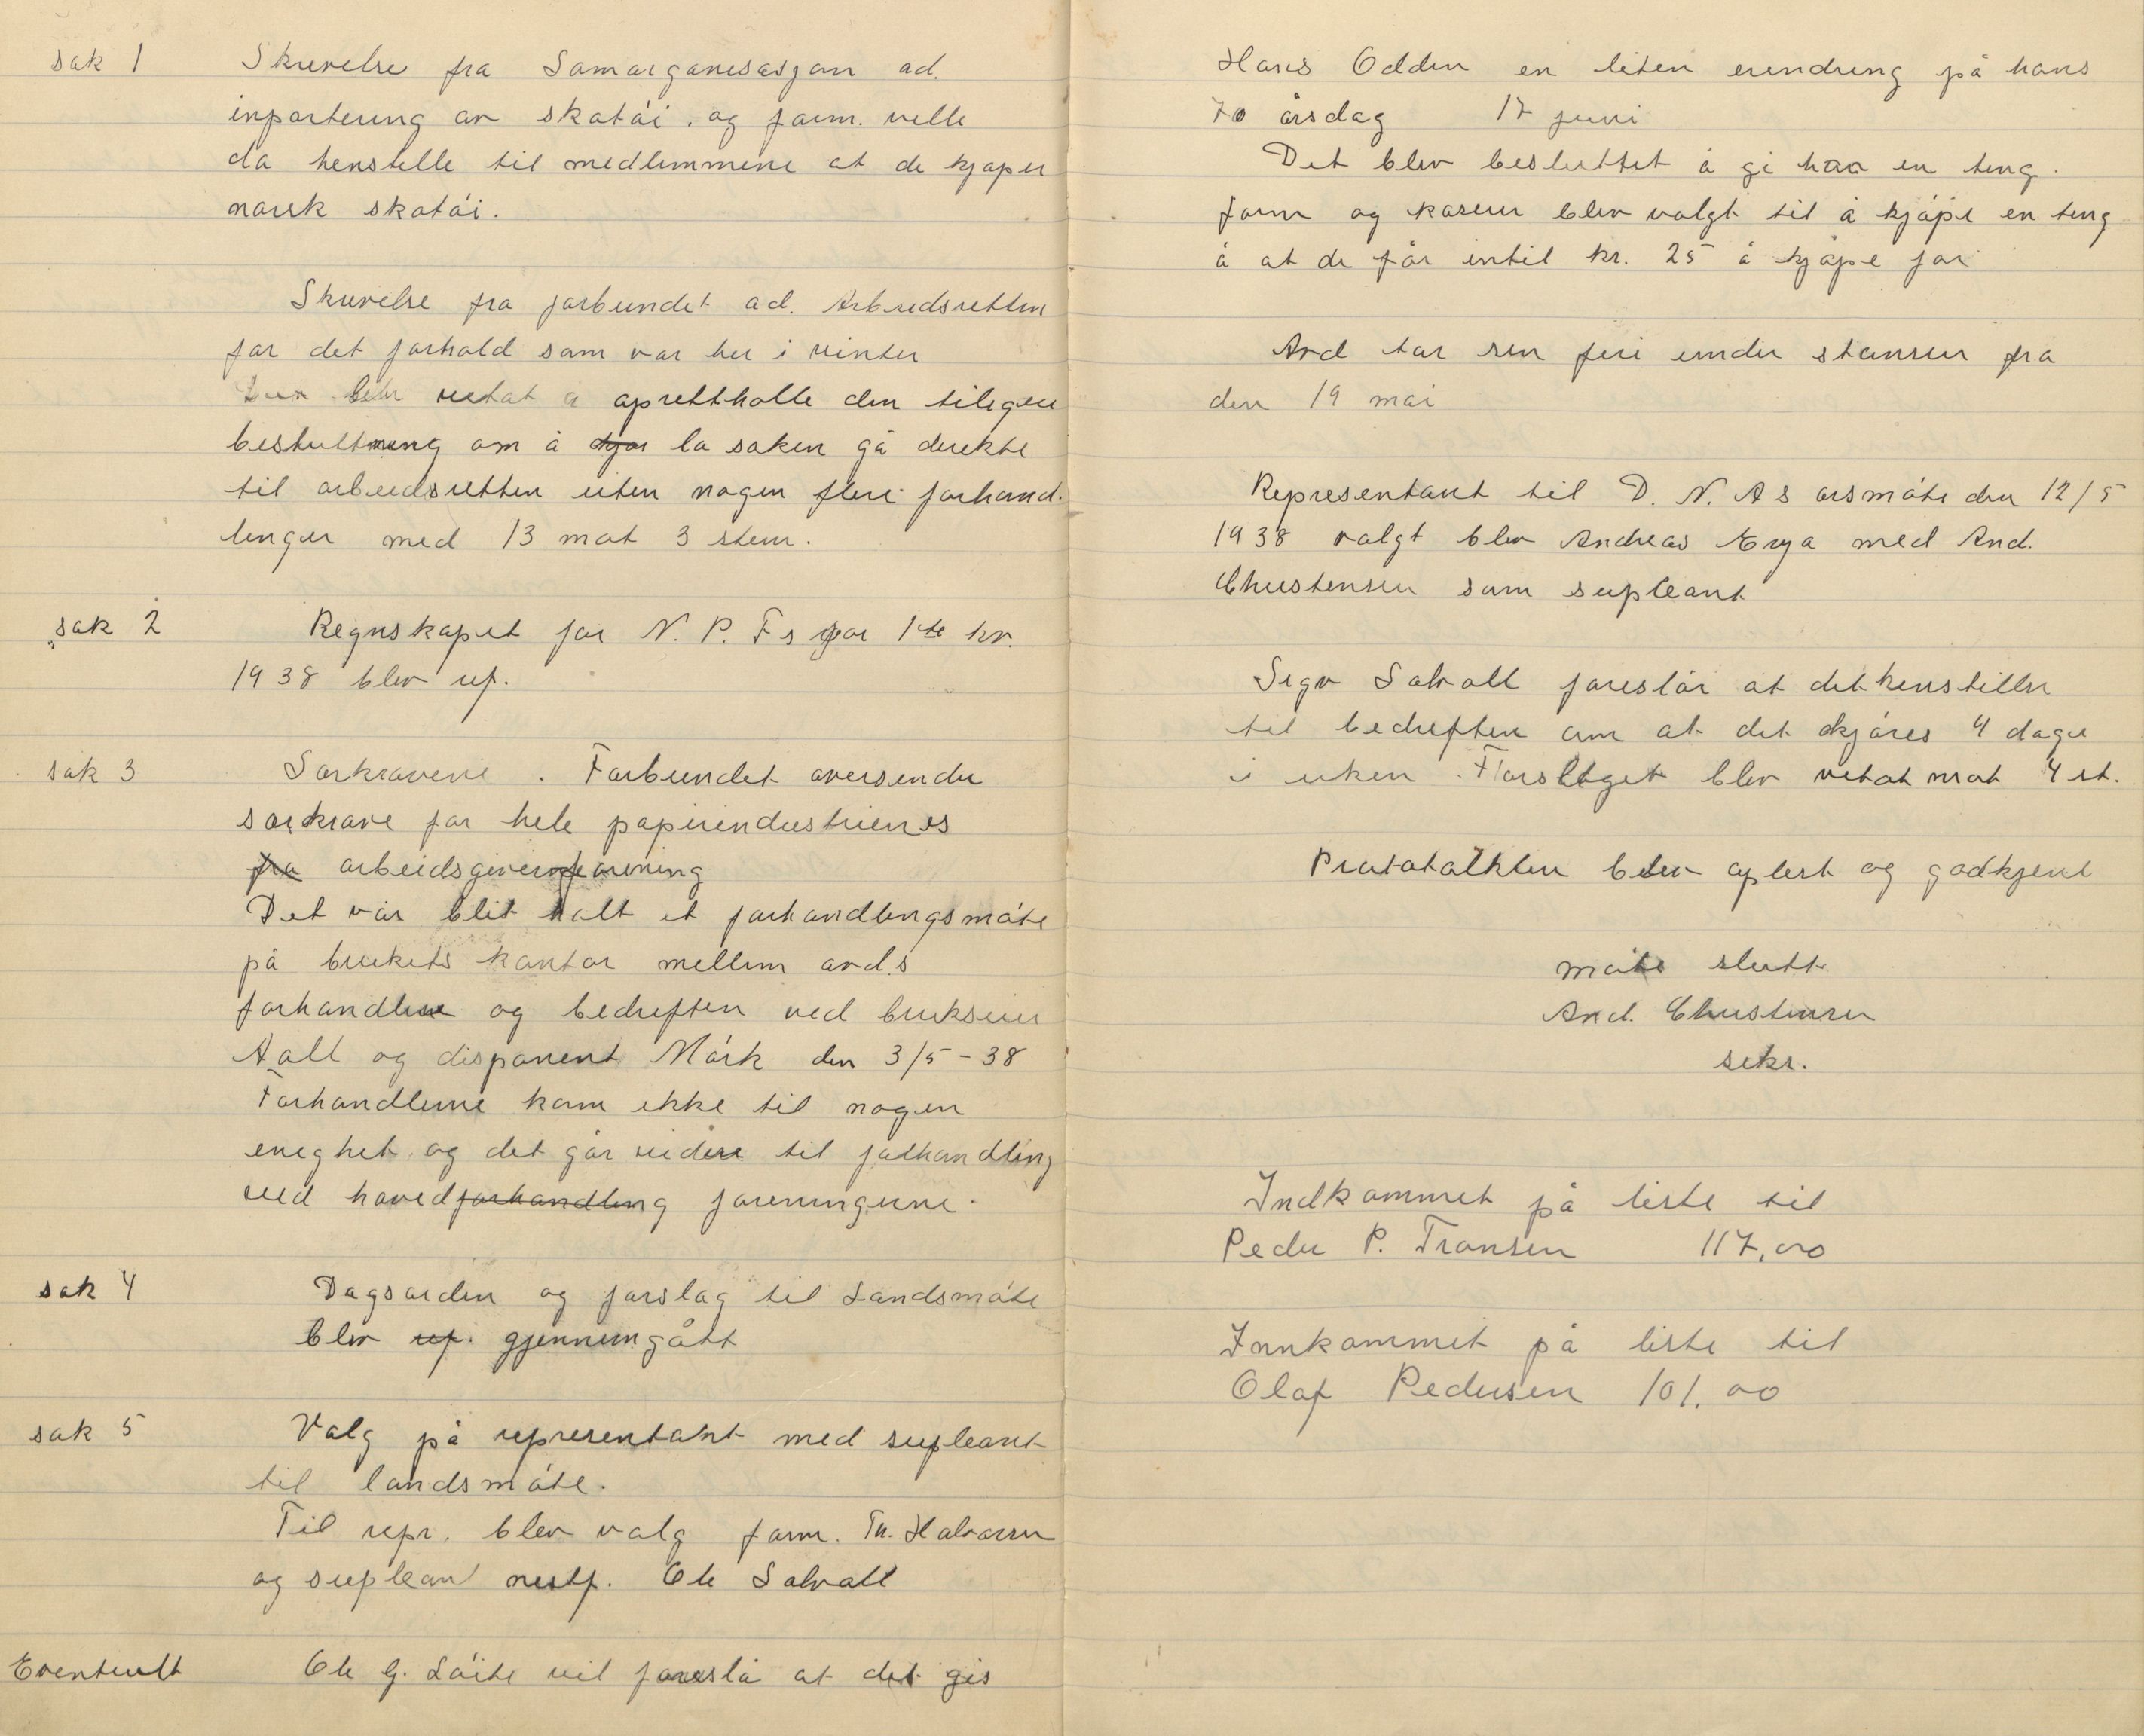 sak 1 Skrivelse fra Samorganisasjon ad.
inportering av skotöi. og form. ville
da henstille til medlemmene at de kjöper
norsk skotöi.
Skrivelse fra forbundet ad. Arbeidsretten
for det forhold som var her i vinter
blev vetat å oprettholle den tiligere
beslultning om å la saken gå direkte
til arbeidsretten uten nogen flere forhand-
linger med 13 mot 3 stem.
sak 2 Regnskapet for N. P. Fs for 1te kv.
1938 blev ref.
sak 3 Særkravene. Forbundet oversender
særkrave for hele papirindustrien es
fra arbeidsgiverforening
Det var blit holt et forhandlingsmöte
på brukets kontor mellem avd.s
forhandlere og bedriften ved brukseier
Aall og disponent Mörk den 3/5-38
Forhandlerne kom ikke til nogen
enighet og det går videre til forhandling
ved hovedforhandling foreningene.
sak 4 Dagsorden og forslag til Landsmöte
blev ref. gjennemgått
sak 5 Valg på representant med supleant
til landsmöte.
Til repr. blev valg form. Th. Halvorsen
og suplean nestf. Ole Solvoll
Eventuelt Ole G. Löite vil foreslå at det gis
Hans Odden en liten erindring på hans
70 årsdag 17 juni
Det blev besluttet å gi haa en ting.
form og kaserer blev valgt til å kjöpe en ting
å at de får intil kr. 25 å kjöpe for
Avd tar sin feri under stansen fra
den 19 mai
Representant til D. N. A s årsmöte den 12/5
1938 valgt blev Andreas Erya med And.
Christensen som supleant
Sigv Solvoll foreslår at det henstilles
til bedriften om at det kjöres 4 dager
i uken. Forslaget blev vetat mot 4 st.
Prototolklen blev oplest og godkjent
möte slutt
And. Christensen
sekr.
Indkommet på liste til
Peder P. Fransen 117,00
Innkommet på liste til
Olaf Pedersen 101.00